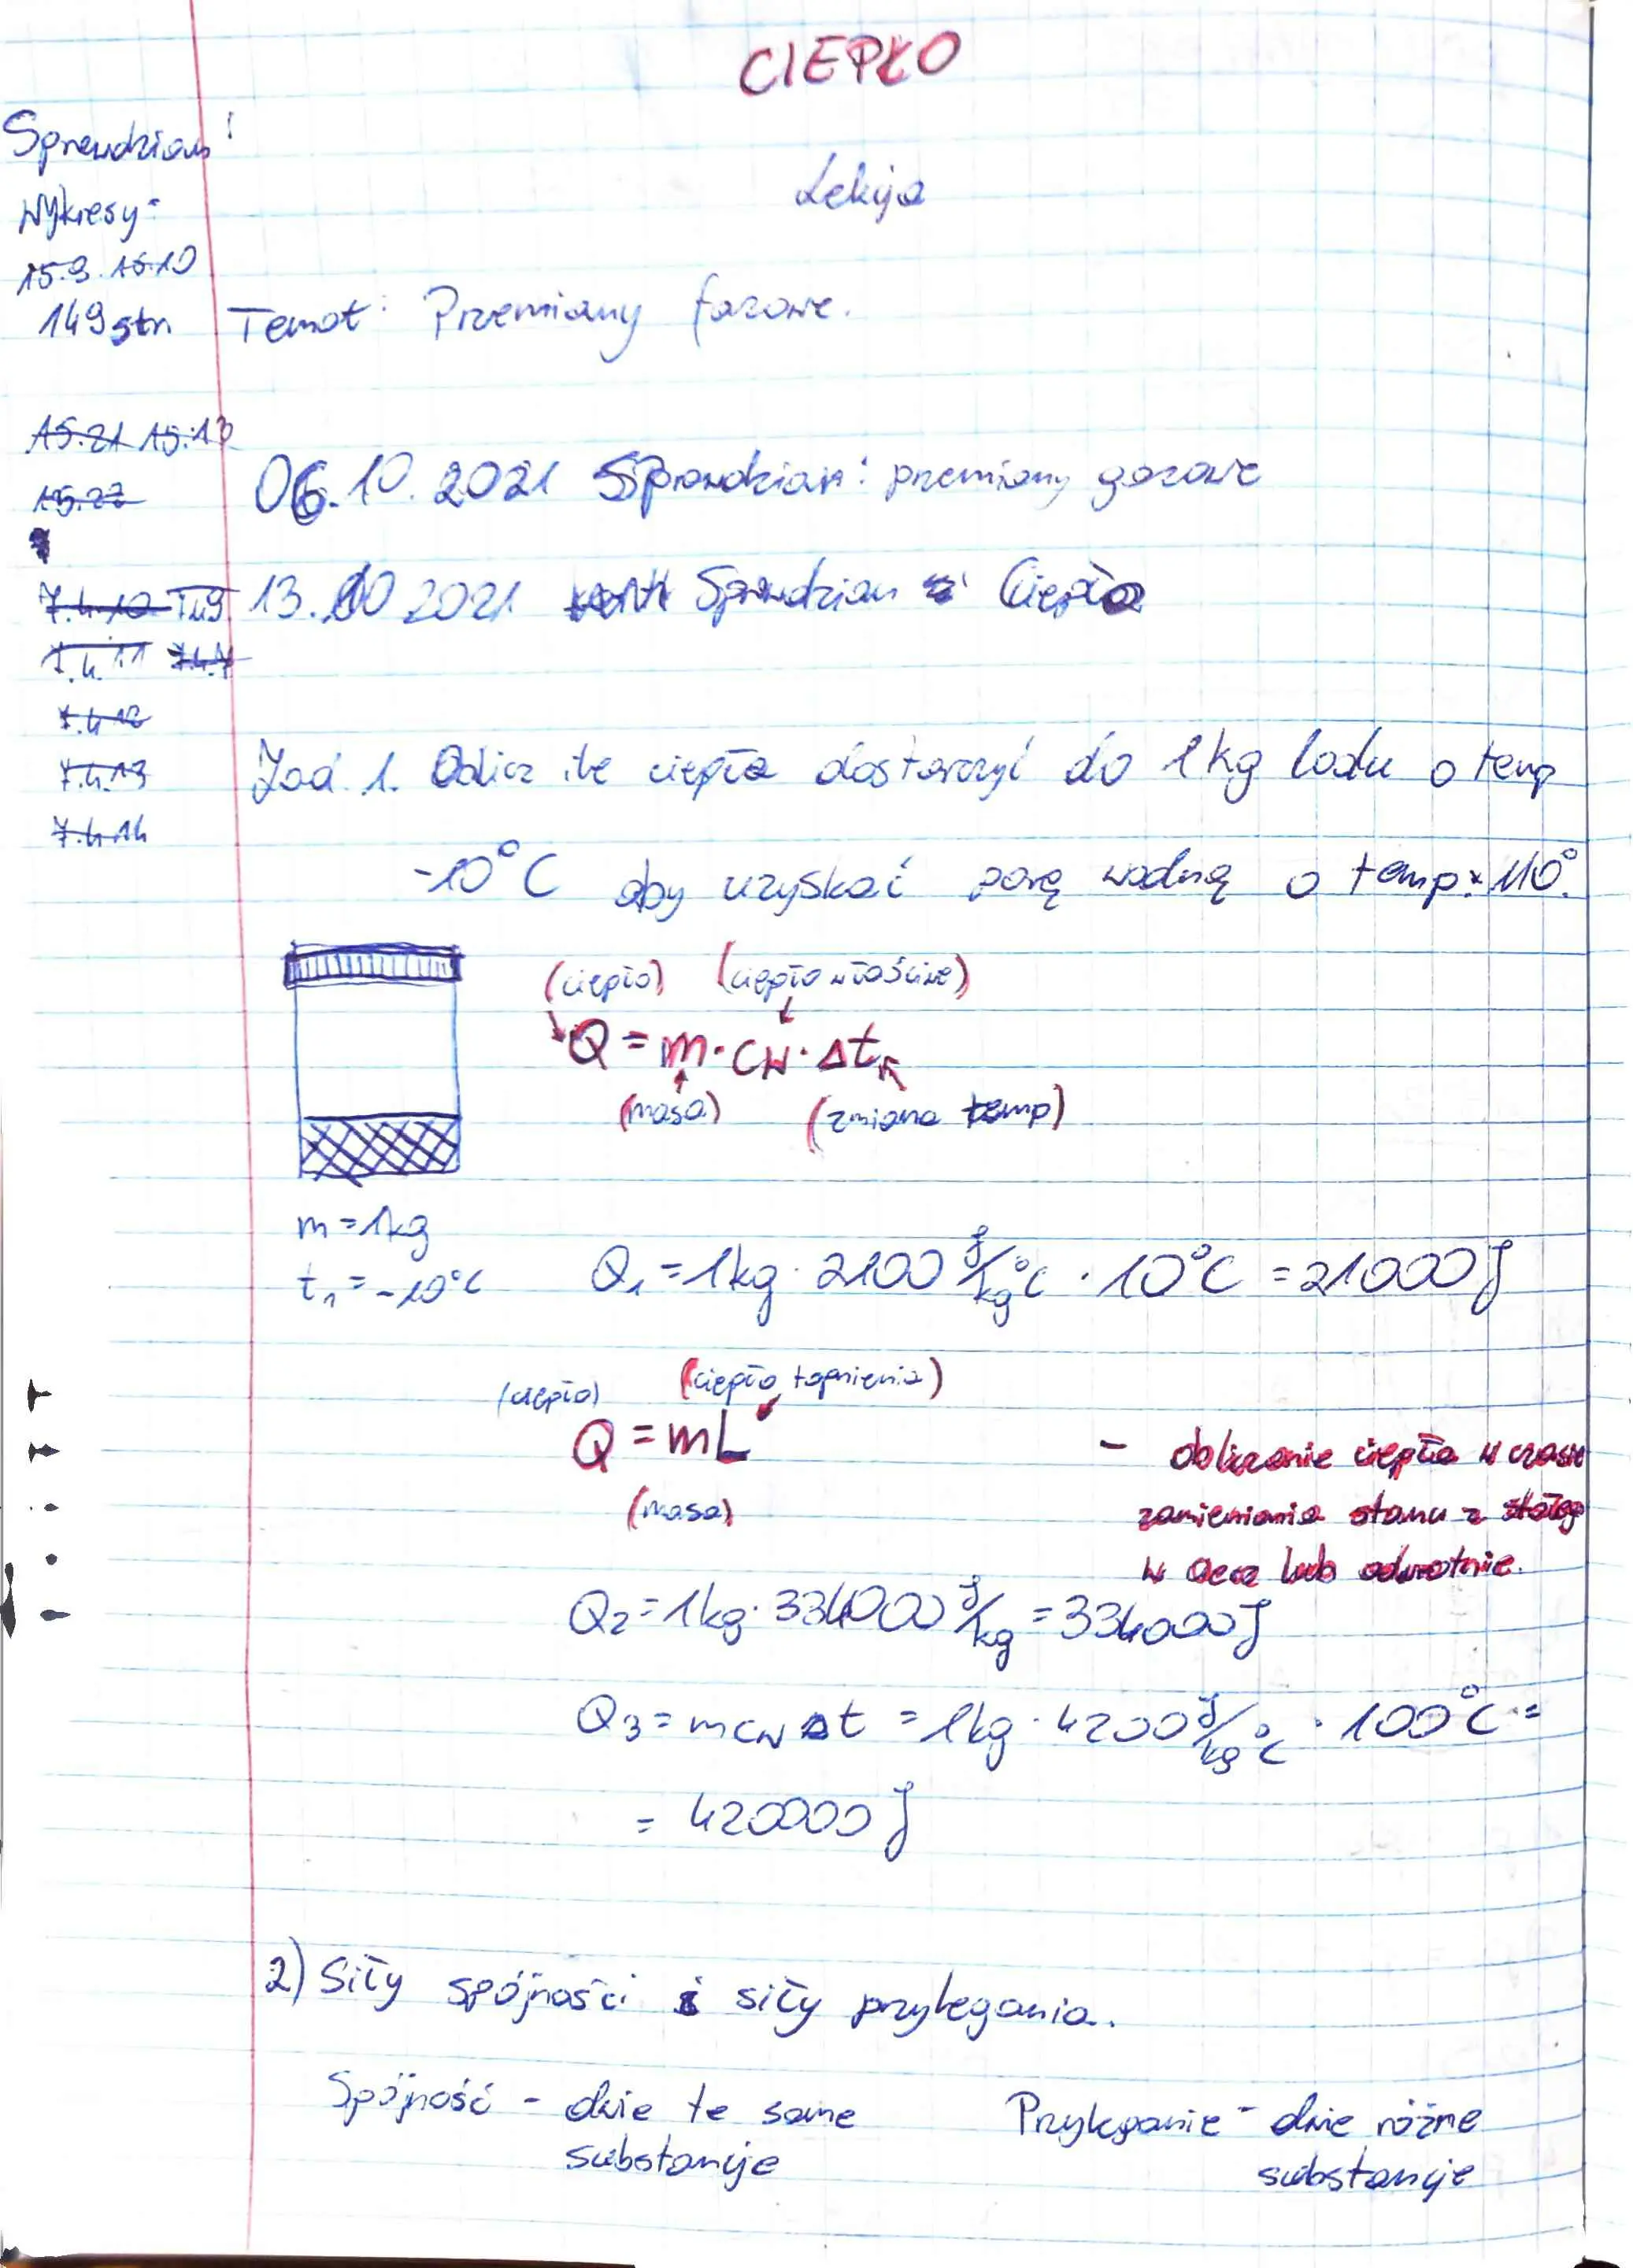 CIEPŁO
Lekcja
Sprawdzian!
Wykresy:
15.9. 15.10
149 str
Temat: Przemiany fazowe.
15.21 15.13
15.22
06.10.2021 Sprawdzian: przemiany gazowe
7.4.10 7.4.9
13.10 2021 Sprawdzian z: Ciepła
7.4.11 7.4.7
7.4.12
7.4.13
7.4.14
Zad 1. Oblicz ile ciepła dostarczyć do 1kg lodu o temp
-10°C aby uzyskać parę wodną o temp. 110°.
(ciepło) (ciepło właściwe)
Q = m · cw · Δt
(masa) (zmiana temp)
m = 1kg
t₁ = -10°C
Q₁ = 1kg · 2100 J/kg°C · 10°C = 21000 J
(ciepło) (ciepło topnienia)
Q = mL
(masa)
- obliczanie ciepła w czasie
zamieniania stanu z stałego
w ciecz lub odwrotnie.
Q₂ = 1kg · 334000 J/kg = 334000 J
Q₃ = mcwΔt = 1kg · 4200 J/kg°C · 100°C =
= 420000 J
2) Siły spójności i siły przylegania.
Spójność - dwie te same
substancje
Przyleganie - dwie różne
substancje